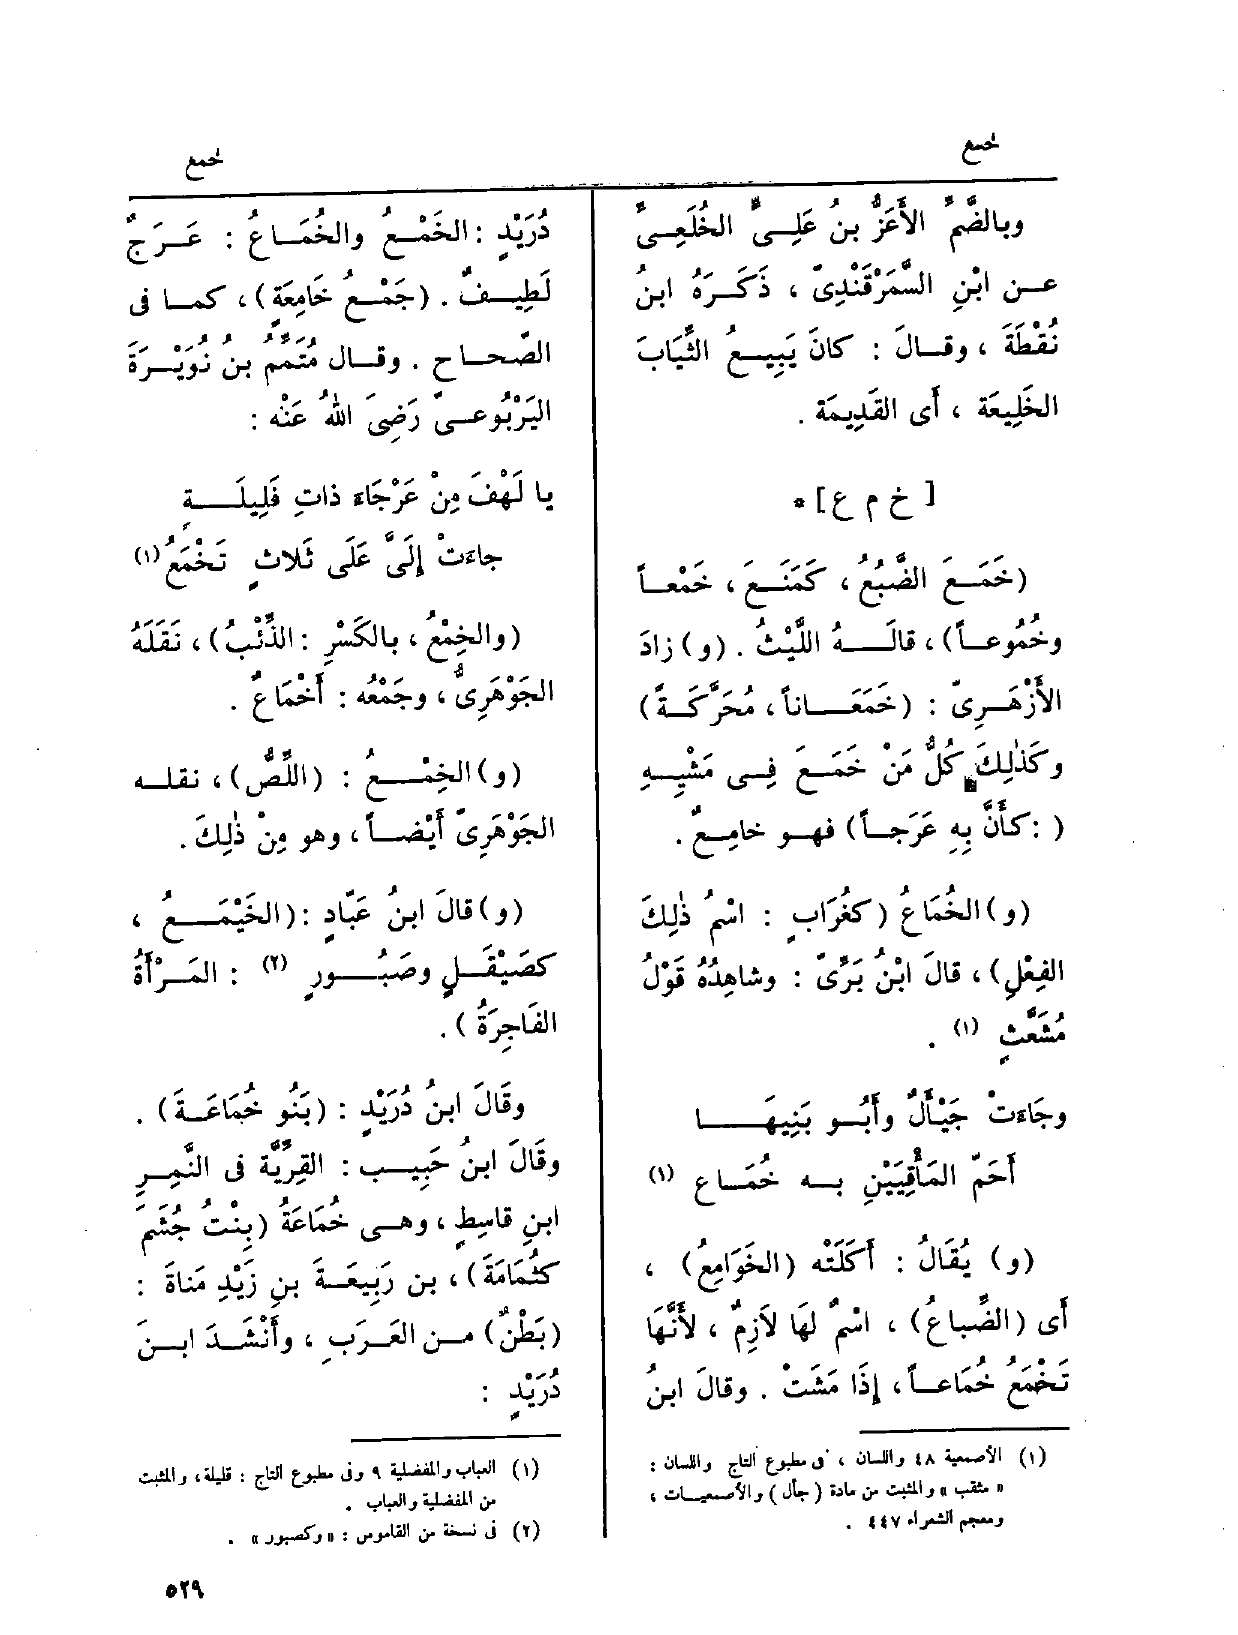 خمع
خمع
وبالضَّمِّ الأَعَزُّ بنُ عَلِىٍّ الخُلَعِىُّ
عن ابْنِ السَّمَرْقَنْدِىّ ، ذَكَرَهُ ابنُ
نُقْطَةَ ، وقالَ : كانَ يَبِيعُ الثِّيَابَ
الخَلِيعَة ، أَى القَدِيمَة .
[ خ م ع ] *
(خَمَعَ الضَّبُعُ ، كَمَنَعَ ، خَمْعاً
وخُمُوعاً) ، قالَهُ اللَّيْثُ . (و) زادَ
الأَزْهَرِىّ : (خَمَعَاناً ، مُحَرَّكَةً)
وكَذٰلِكَ كُلُّ مَنْ خَمَعَ فِى مَشْيِهِ
( : كأَنَّ بِهِ عَرَجاً) فهو خامِعٌ .
(و) الخُمَاعُ (كغُرَابٍ : اسْمُ ذٰلِكَ
الفِعْلِ) ، قالَ ابْنُ بَرِّىّ : وشاهِدُهُ قَوْلُ
مُشَعَّثٍ (١) .
وجَاءَتْ جَيْأَلٌ وأَبُو بَنِيهَا
أَحَمُّ المَأْقِيَيْنِ به خُمَاع (١)
(و) يُقَالُ : أَكَلَتْه (الخَوَامِعُ) ،
أَى (الضِّباعُ) ، اسْمٌ لهَا لاَزِمٌ ، لأَنَّهَا
تَخْمَعُ خُمَاعاً ، إِذَا مَشَتْ . وقالَ ابنُ
(١) الأصمعية ٤٨ واللسان ، فى مطبوع التاج واللسان :
« مثقب » والمثبت من مادة (جأل) والأصمعيات ،
ومعجم الشعراء ٤٤٧ .
دُرَيْدٍ : الخَمْعُ والخُمَاعُ : عَرَجٌ
لَطِيفٌ . (جَمْعُ خَامِعَةٍ) ، كما فى
الصّحاح . وقال مُتَمِّمُ بنُ نُوَيْرَةَ
اليَرْبُوعىّ رَضِىَ اللهُ عَنْه :
يا لَهْفَ مِنْ عَرْجَاءَ ذاتِ فَلِيلَةٍ
جاءَتْ إِلَىَّ عَلَى ثَلاثٍ تَخْمَعُ (١)
(والخِمْعُ ، بالكَسْرِ : الذِّئْبُ) ، نَقَلَهُ
الجَوْهَرِىُّ ، وجَمْعُه : أَخْمَاعٌ .
(و) الخِمْعُ : (اللِّصُّ) ، نقله
الجَوْهَرِىّ أَيْضاً ، وهو مِنْ ذٰلِكَ .
(و) قالَ ابنُ عَبّادٍ : (الخَيْمَعُ ،
كصَيْقَلٍ وصَبُورٍ (٢) : المَرْأَةُ
الفَاجِرَةُ) .
وقَالَ ابنُ دُرَيْدٍ : (بَنُو خُمَاعَةَ) .
وقَالَ ابنُ حَبِيب : القِرِّيَّة فى النَّمِرِ
ابنِ قاسِطٍ ، وهى خُمَاعَةُ (بِنْت جُشَمَ
كثُمَامَةَ) ، بن رَبِيعَةَ بنِ زَيْدِ مَناةَ :
(بَطْنٌ) من العَرَبِ ، وأَنْشَدَ ابنَ
دُرَيْدٍ :
(١) العباب والمفضلية ٩ وفى مطبوع التاج : قليلة ، والمثبت
من المفضلية والعباب .
(٢) فى نسخة من القاموس : « وكصبور » .
٥٢٩